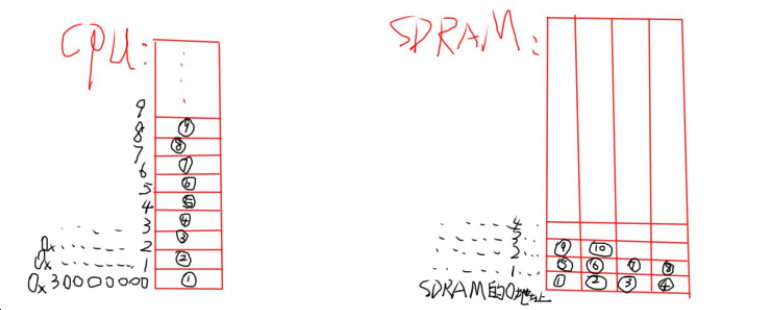 CPU:
9
8 ⑨
7 ⑧
6 ⑦
5 ⑥
4 ⑤
3 ④
0x ······ 2 ③
0x ······ 1 ②
0x30000000 ①
SDRAM:
4
3
2 ⑨ ⑩
1 ⑤ ⑥ ⑦ ⑧
SDRAM的0地址 ① ② ③ ④